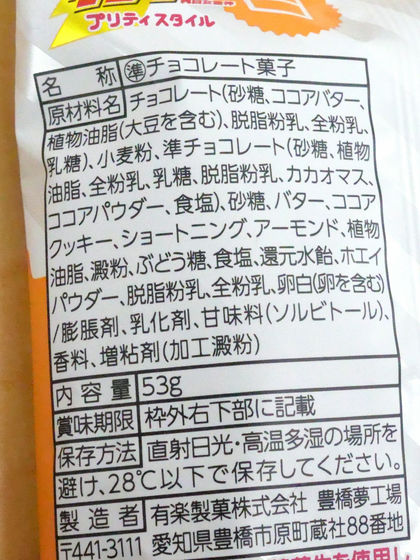 プリティスタイル
名称 ㊜チョコレート菓子
原材料名 チョコレート(砂糖、ココアバター、
植物油脂(大豆を含む)、脱脂粉乳、全粉乳、
乳糖)、小麦粉、準チョコレート(砂糖、植物
油脂、全粉乳、乳糖、脱脂粉乳、カカオマス、
ココアパウダー、食塩)、砂糖、バター、ココア
クッキー、ショートニング、アーモンド、植物
油脂、澱粉、ぶどう糖、食塩、還元水飴、ホエイ
パウダー、脱脂粉乳、全粉乳、卵白(卵を含む)
/膨脹剤、乳化剤、甘味料(ソルビトール)、
香料、増粘剤(加工澱粉)
内容量 53g
賞味期限 枠外右下部に記載
保存方法 直射日光・高温多湿の場所を
避け、28℃以下で保存してください。
製造者 有楽製菓株式会社 豊橋夢工場
〒441-3111 愛知県豊橋市原町蔵社88番地
を使用し